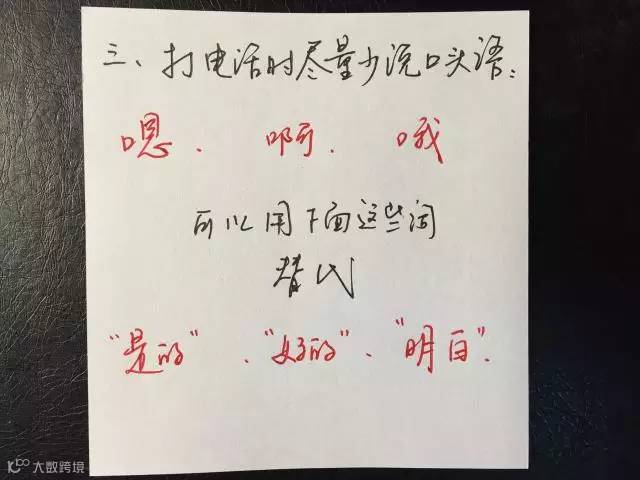 三、打电话时尽量少说口头语：
嗯． 啊． 哦
可以用下面这些词
替代
"是的"、"好的"、"明白"．
大数跨境